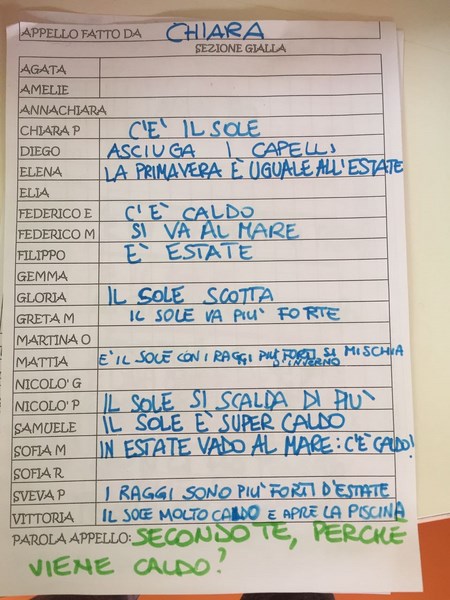 APPELLO FATTO DA CHIARA
SEZIONE GIALLA
AGATA
AMELIE
ANNACHIARA
CHIARA P C'È IL SOLE
DIEGO ASCIUGA I CAPELLI
ELENA LA PRIMAVERA È UGUALE ALL'ESTATE
ELIA
FEDERICO E C'È CALDO
FEDERICO M SI VA AL MARE
FILIPPO È ESTATE
GEMMA
GLORIA IL SOLE SCOTTA
GRETA M IL SOLE VA PIU' FORTE
MARTINA O
MATTIA E' IL SOLE CON I RAGGI PIU' FORTI SI MISCHIA
D'INVERNO
NICOLO' G
NICOLO' P IL SOLE SI SCALDA DI PIU'
SAMUELE IL SOLE È SUPER CALDO
SOFIA M IN ESTATE VADO AL MARE: C'È CALDO!
SOFIA R
SVEVA P I RAGGI SONO PIU' FORTI D'ESTATE
VITTORIA IL SOLE MOLTO CALDO E APRE LA PISCINA
PAROLA APPELLO: SECONDO TE, PERCHÉ
VIENE CALDO?